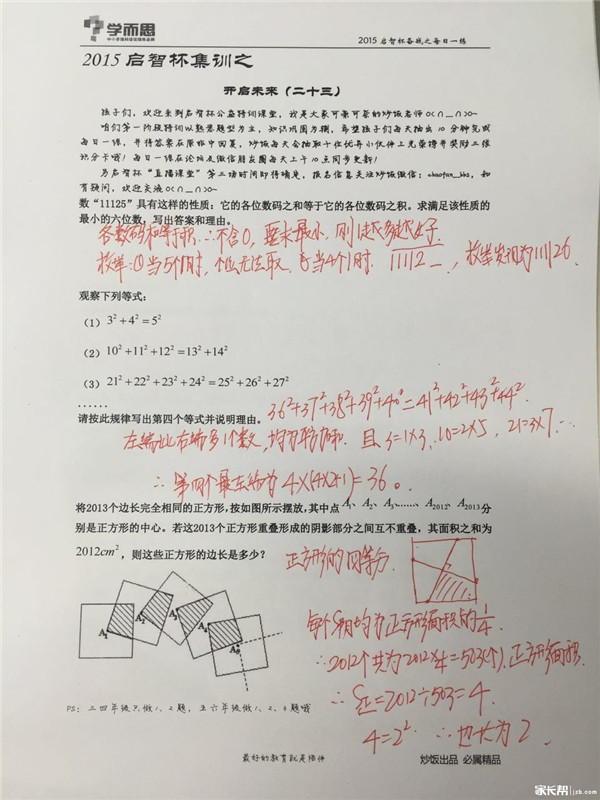 学而思
中小学理科培优服务品牌
2015启智杯备战之每日一练
2015 启智杯集训之
开启未来（二十三）
孩子们，欢迎来到启智杯公益特训课堂，我是大家可亲可爱的炒饭老师
咱们第一阶段特训以熟悉题型为主，知识巩固为辅，希望孩子们每天抽出 10 分钟完成
每日一练，并将答案在原帖中回复，炒饭每天会抽取十位优秀小伙伴上光荣榜并奖励三张
积分卡哦！每日一练在论坛及微信朋友圈每天上午 10 点同步更新！
另启智杯“直播课堂”第三场时间即将确定，报名信息关注炒饭微信：chaofan_jbs，如
有疑问，欢迎交流
数“11125”具有这样的性质：它的各位数码之和等于它的各位数码之积。求满足该性质的
最小的六位数，写出答案和理由。
各数码和等于积，∴不含0，要求最小，则1越多越好
枚举：①当5个1时，个位无法取，②当4个1时，11112_，枚举发现为111126
观察下列等式：
（1）3²+4²=5²
（2）10²+11²+12²=13²+14²
（3）21²+22²+23²+24²=25²+26²+27²
……
36²+37²+38²+39²+40²=41²+42²+43²+44²
请按此规律写出第四个等式并说明理由。
左端比右端多1个数，均为平方和，且3=1×3，10=2×5，21=3×7…
∴第四个最左端为4×(4×2+1)=36。
将2013个边长完全相同的正方形，按如图所示摆放，其中点 A₁、A₂、A₃、……、A₂₀₁₂、A₂₀₁₃分
别是正方形的中心。若这2013个正方形重叠形成的阴影部分之间互不重叠，其面积之和为
2012cm²，则这些正方形的边长是多少？
正方形的四等分
A₁ A₂ A₃ A₄ A₅
每个S阴均为正方形面积的1/4
∴2012个共为2012×1/4=503(个)正方形面积
∴S正=2012÷503=4
4=2² ∴边长为2
PS：三四年级只做1、2题，五六年级做1、2、3题哦
最好的教育就是陪伴
炒饭出品 必属精品
家长帮 jzb.com